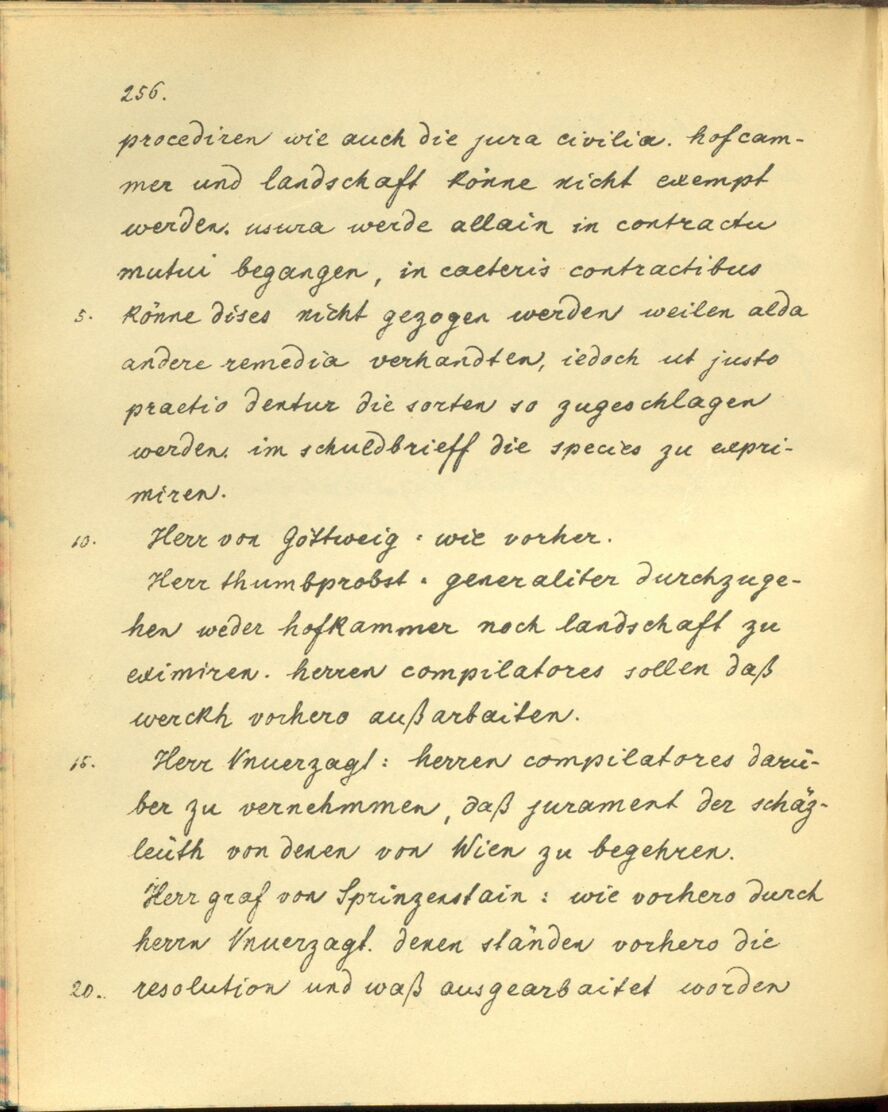 256.
procediren wie auch die jura civilia. hofcam-
mer und landschaft könne nicht exempt
werden. usura werde allain in contractu
mutui begangen, in caeteris contractibus
5. könne dises nicht gezogen werden weilen alda
andere remedia verhandten, iedoch ut justo
praetio dentur die sorten so zugeschlagen
werden. im schuldbrieff die species zu expri-
miren.
10. Herr von Göttweig : wie vorher.
Herr thumbprobst : generaliter durchzuge-
hen weder hofkammer noch landschaft zu
eximiren. herren compilatores sollen daß
werckh vorhero außarbaiten.
15. Herr Vnuerzagt : herren compilatores darü-
ber zu vernehmmen, daß jurament der schäz-
leüth von denen von Wien zu begehren.
Herr graf von Sprinzenstain : wie vorhero durch
herrn Vnuerzagt. denen ständen vorhero die
20. resolution und waß ausgearbaitet worden